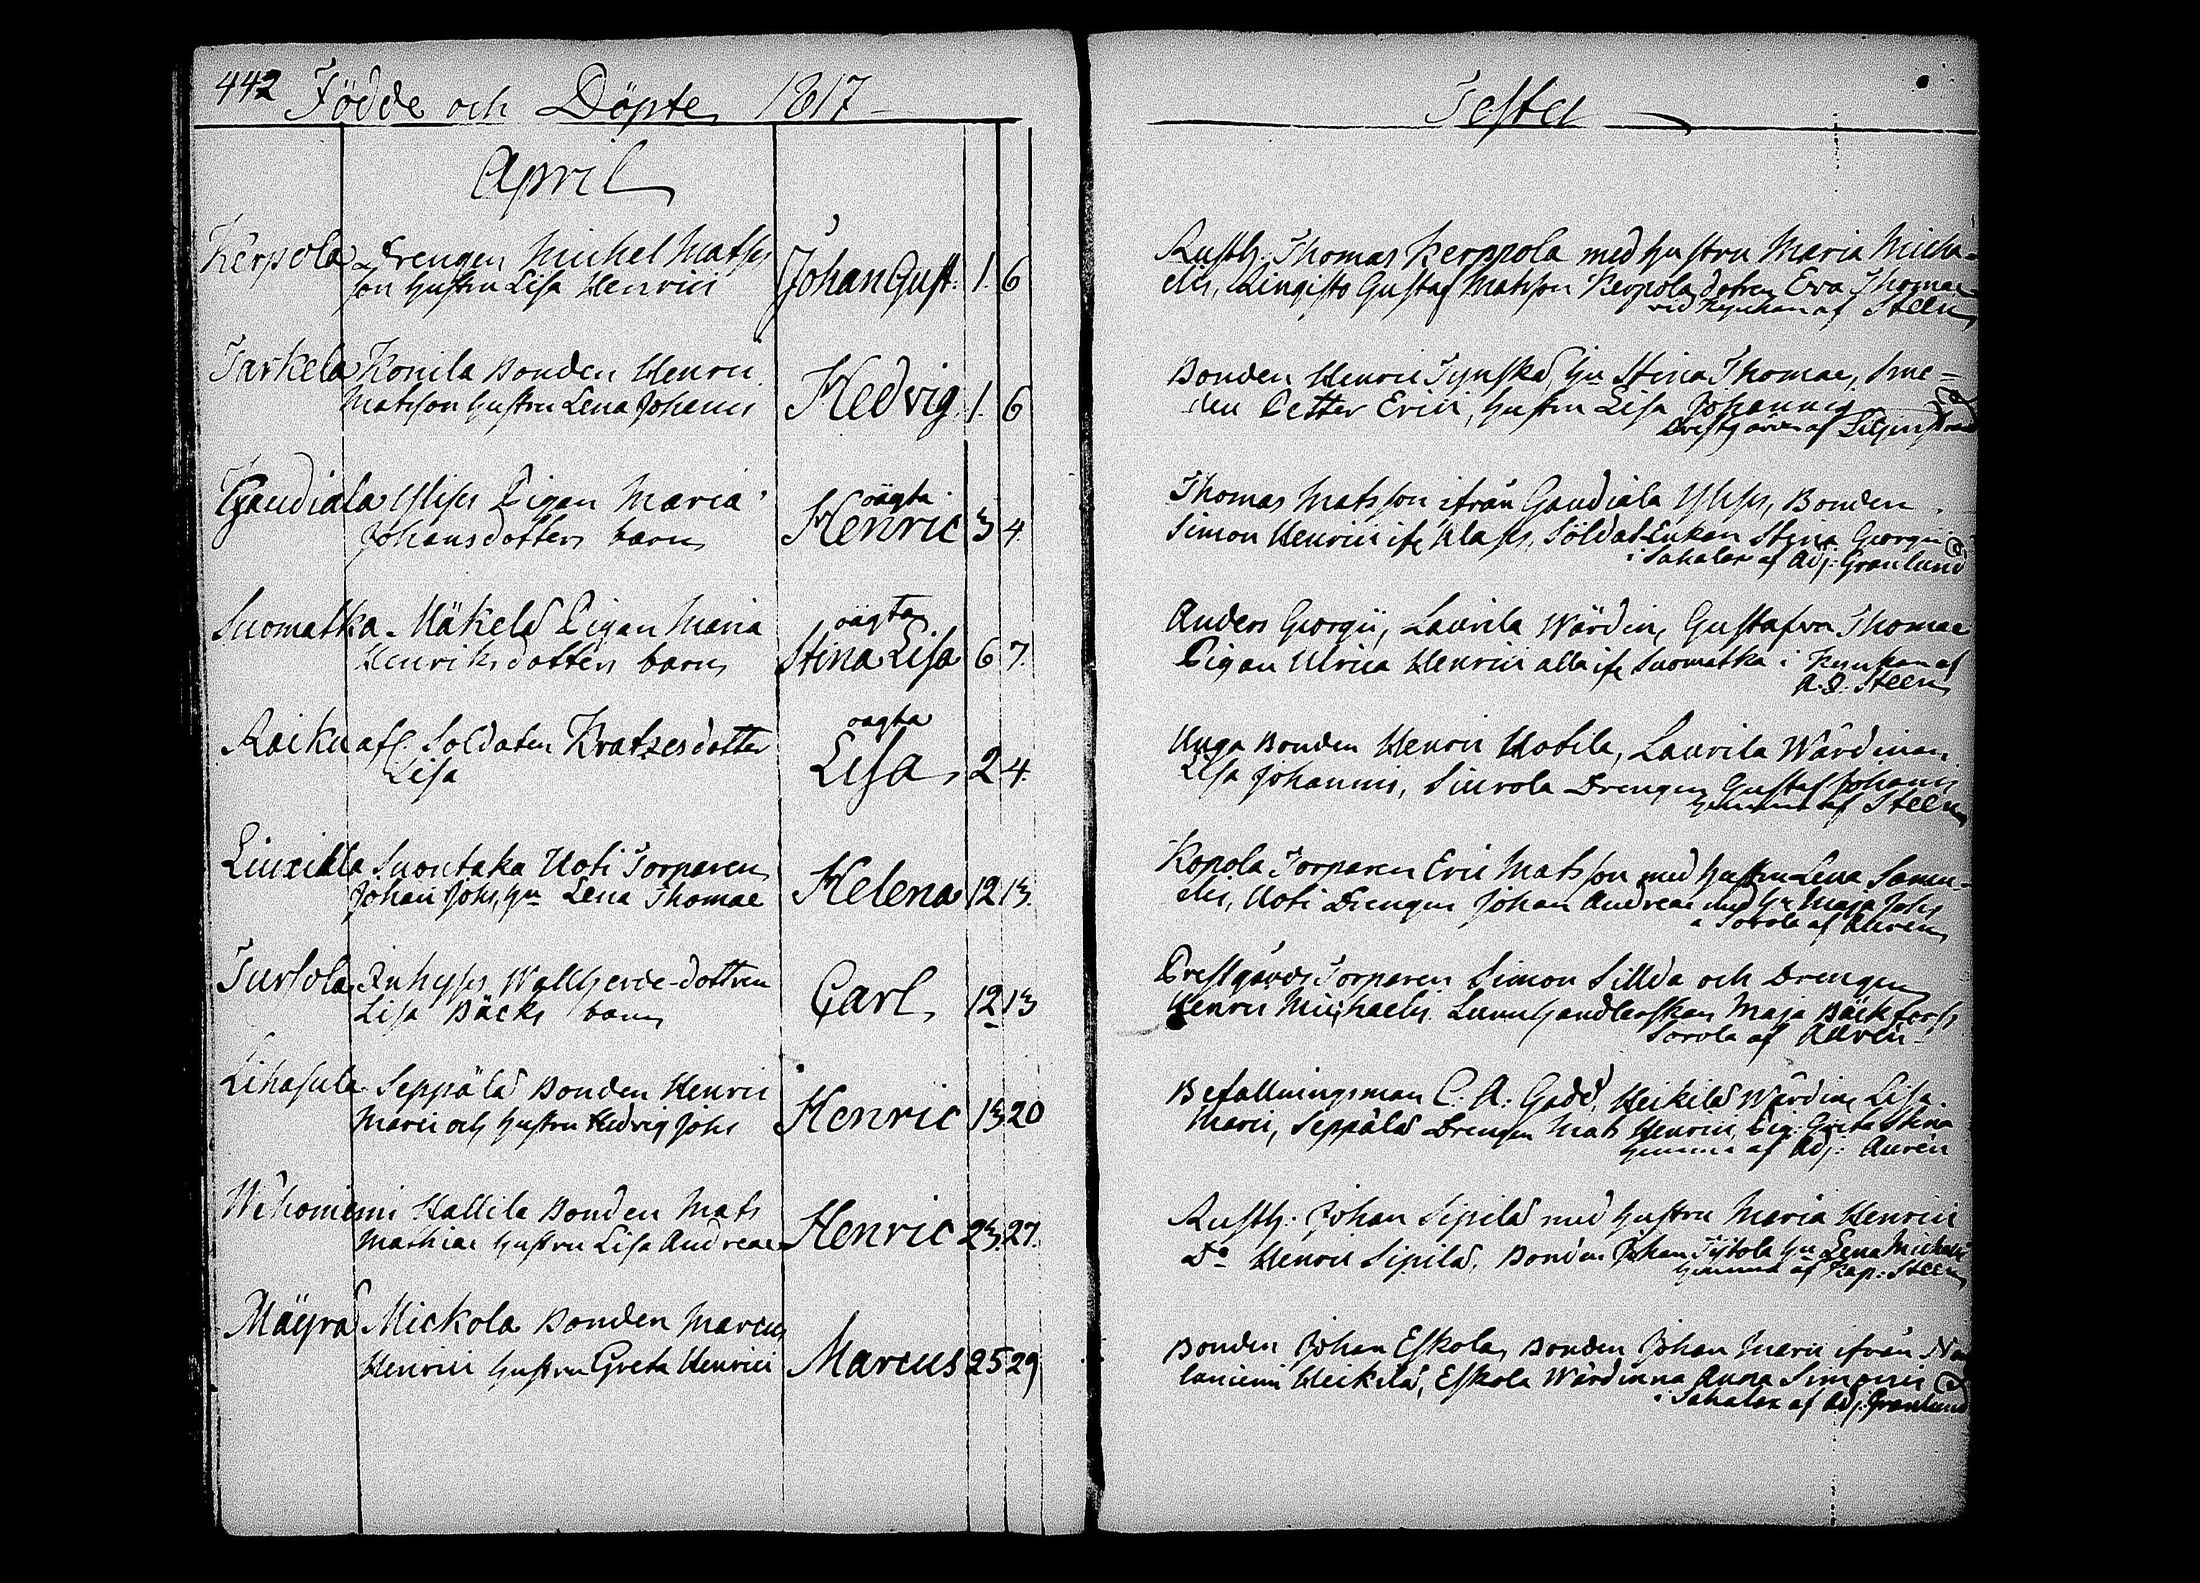 442 Födde och Döpte 1817
Testes
April
Kerpola Drengen Michel Mats
son hustru Lisa Henrici Johan Gust. 1. 6
Rusth. Thomas Kerppola med hustru Maria Micha-
elis, Gustaf Matsson Kerpola dotren Eva Thomae
af Steen
Tarkela Konila Bonden Henric
Matsson hustru Lena Johannis Hedvig 1. 6
Bonden Henric hu Stina Thomae, Sme-
den Petter Erici, hustru Lisa Johannis
Prestgården af
Gaudiala Ylijss Pigan Maria
Johansdotters barn oägta Henric 3 4
Thomas Matsson ifrån Gaudiala Ylijss, Bonden
Simon Henrici ifr Soldat Enkan Stina Georgii
i Sahalax af Adj: Granlund
Suomatka Mäkelä Pigan Maria
Henriksdotters barn oägta Stina Lisa 6 7
Anders Georgii, Laurila Wärdin, Gustafva Thomae
Pigan Ulrica Henrici alla ifr Suomatka i Kyrkan af
A.J. Steen
Raiku afl. Soldaten Kratzes dotter
Lisa oägta Lisa 2 4.
Unga Bonden Henric Uotila, Laurila Wärdinan
Lisa Johannis, Siurola Drengen Gustaf Johannis
hemma af Steen
Liuxiala Suontaka Uoti Torparen
Johan Johs, hu Lena Thomae Helena 12 13.
Kopola Torparen Eric Matsson med hustru Lena Samu-
elis, Uoti Drengen Johan Andreae med hu Maja Johs
i Sorola af Auren
Tursola Wallherde-dottren
Lisa Bäcks barn Carl 12 13
Prestgårds Torparen Simon Sillda och Drengen
Henric Michaelis Maja Bäckfors
Sorola af Auren
Lihasula Seppälä Bonden Henric
Marci och hustru Hedvig Johs Henric 13 20
Befallningsman C. A. Gadd, Heikilä Wärdin, Lisa
Marci, Seppälä Drengen Mats Henrici, Pig: Greta Stina
hemma af Adj: Auren
Wehoniemi Hallila Bonden Mats
Mathiae hustru Lisa Andreae Henric 23. 27.
Rusth. Johan Sipilä med hustru Maria Henrici
Do Henric Sipilä, Bonden Johan hu Lena Michaelis
hemma af Kap: Steen
Mäyrä Mickola Bonden Marcus
Henrici hustru Greta Henrici Marcus 25 29
Bonden Johan Eskola, Bonden Johan Marci ifrån
Heikilä, Eskola Wärdinna Anna Simonis
i Sahalax af Adj. Granlund